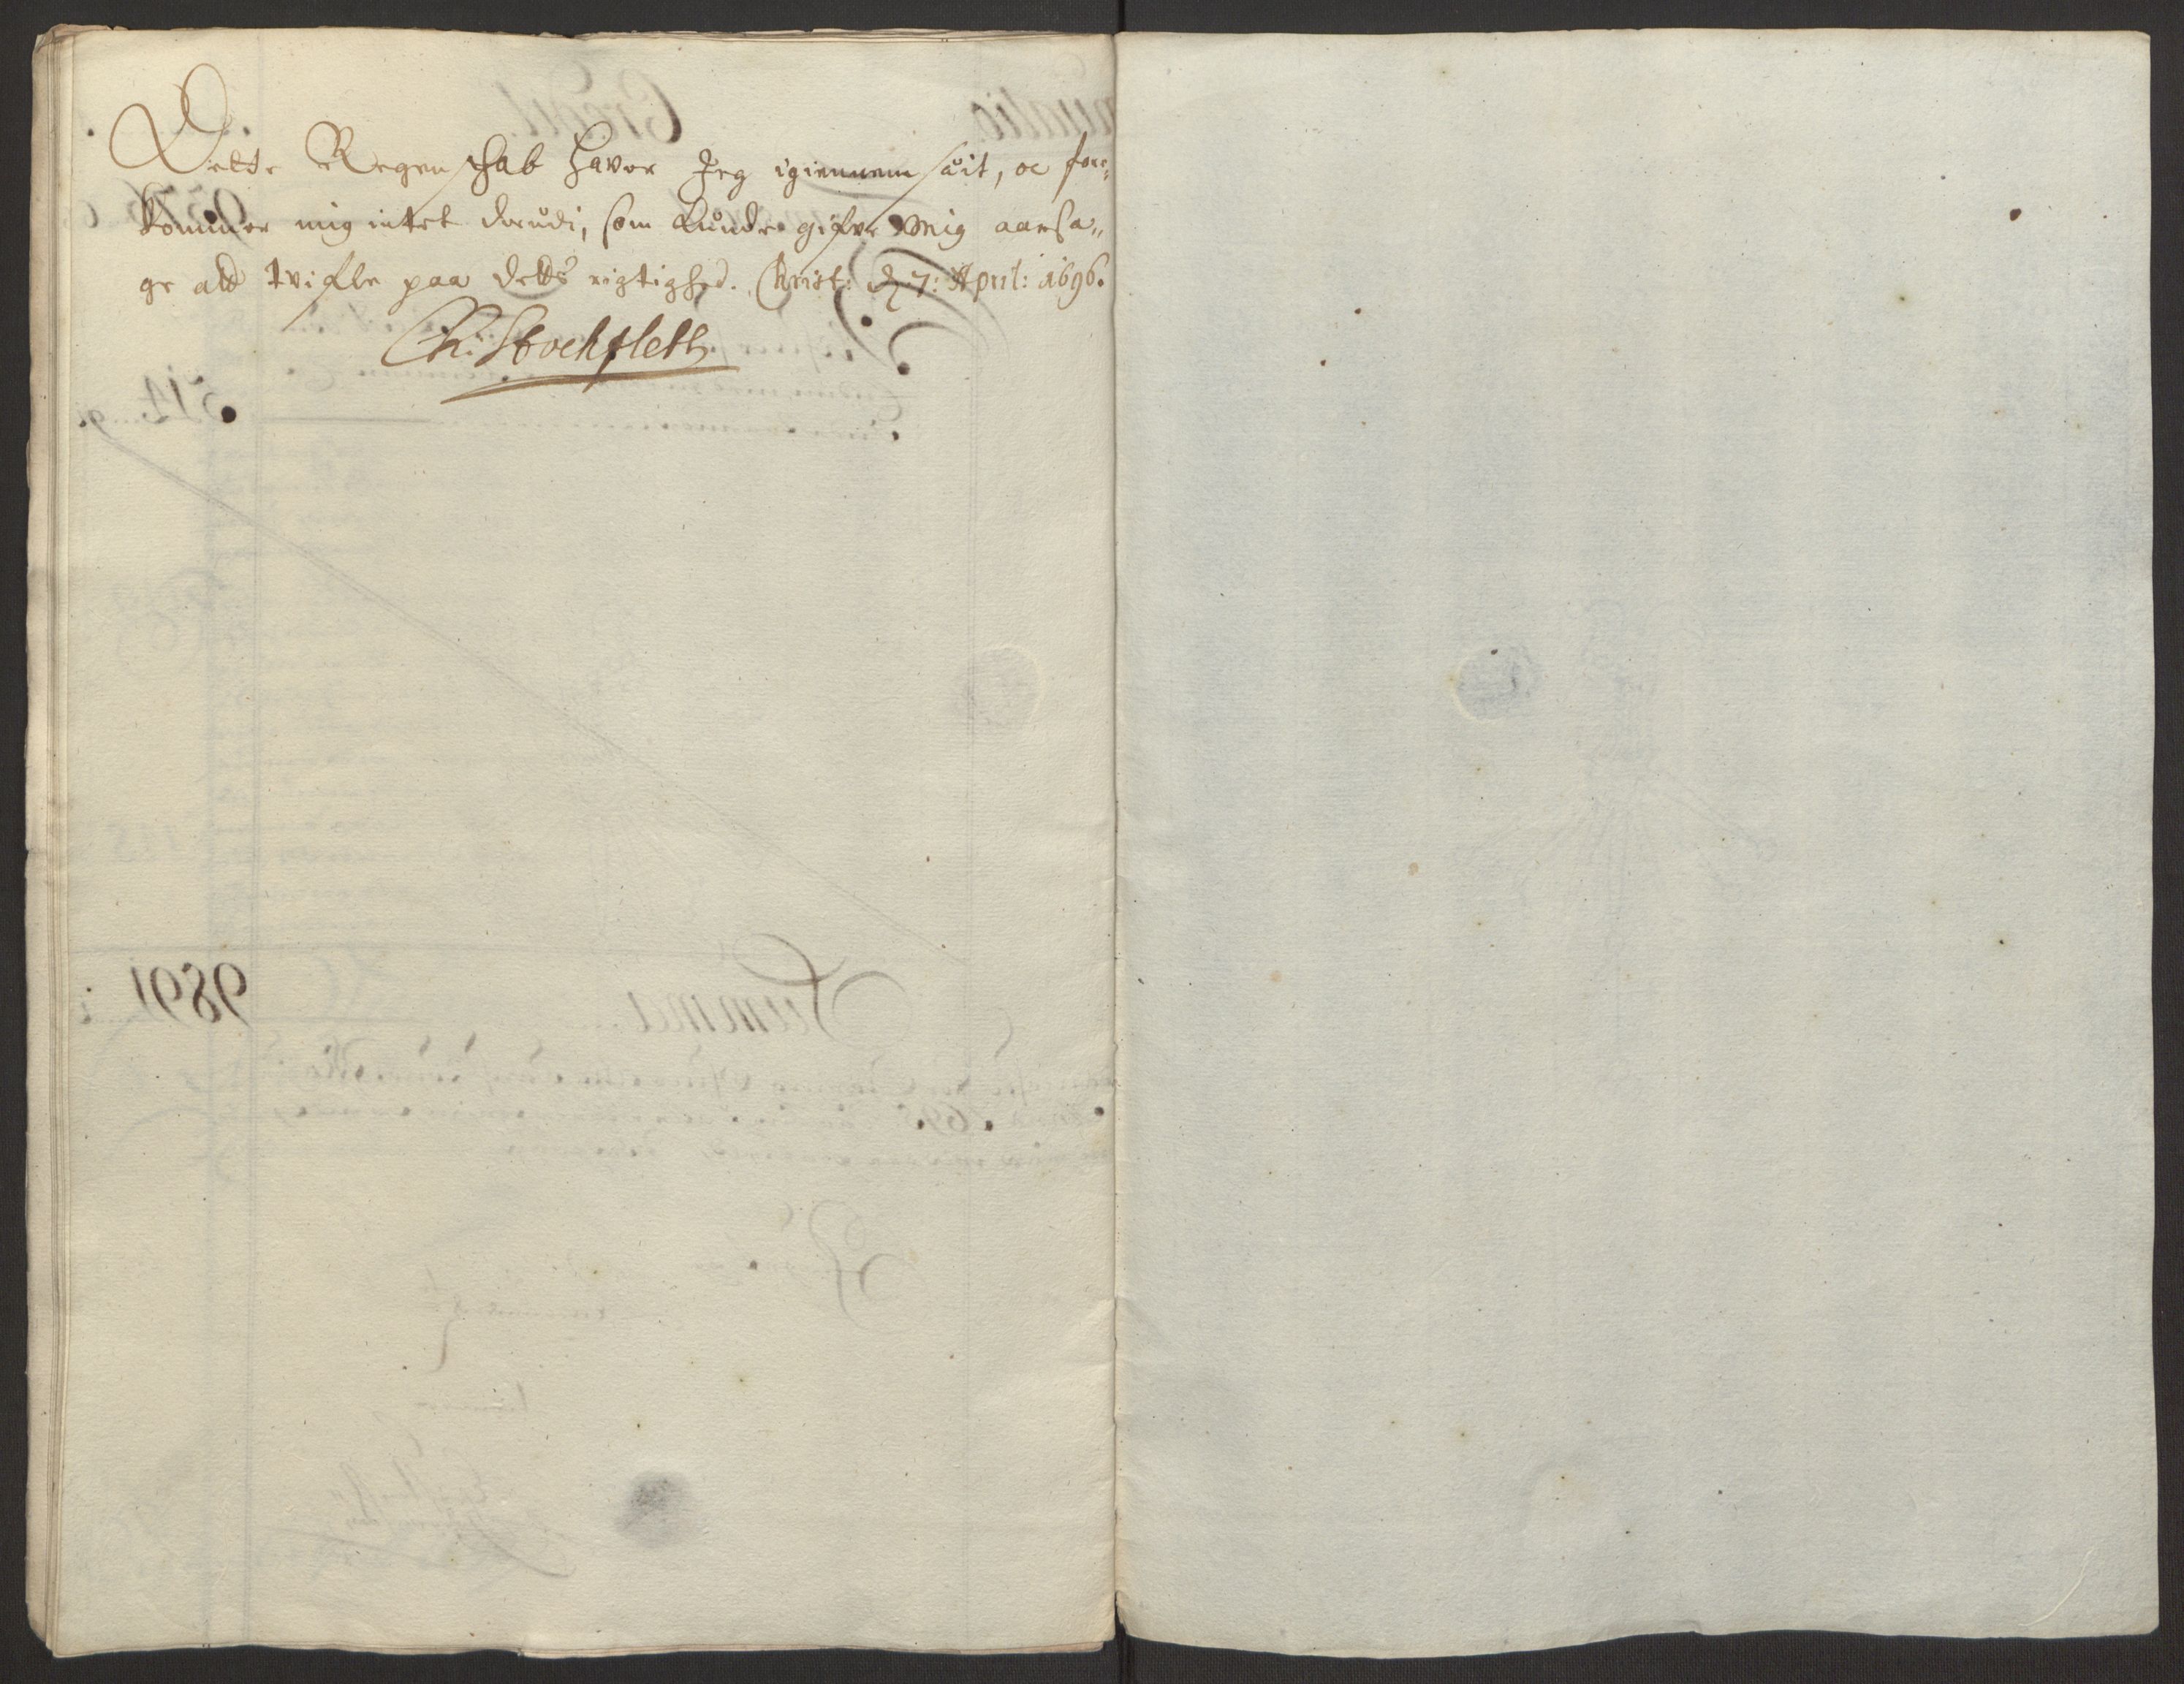 Dette Regenschab haver Jeg igiennem sŭit, oc fore-
kommer mig intet derŭdi, som kŭnde gifve Mig aarsa„
ge att tvifle paa detts rigtighed. Christ: d 7: April: 1696.
Chr: Stochfleth